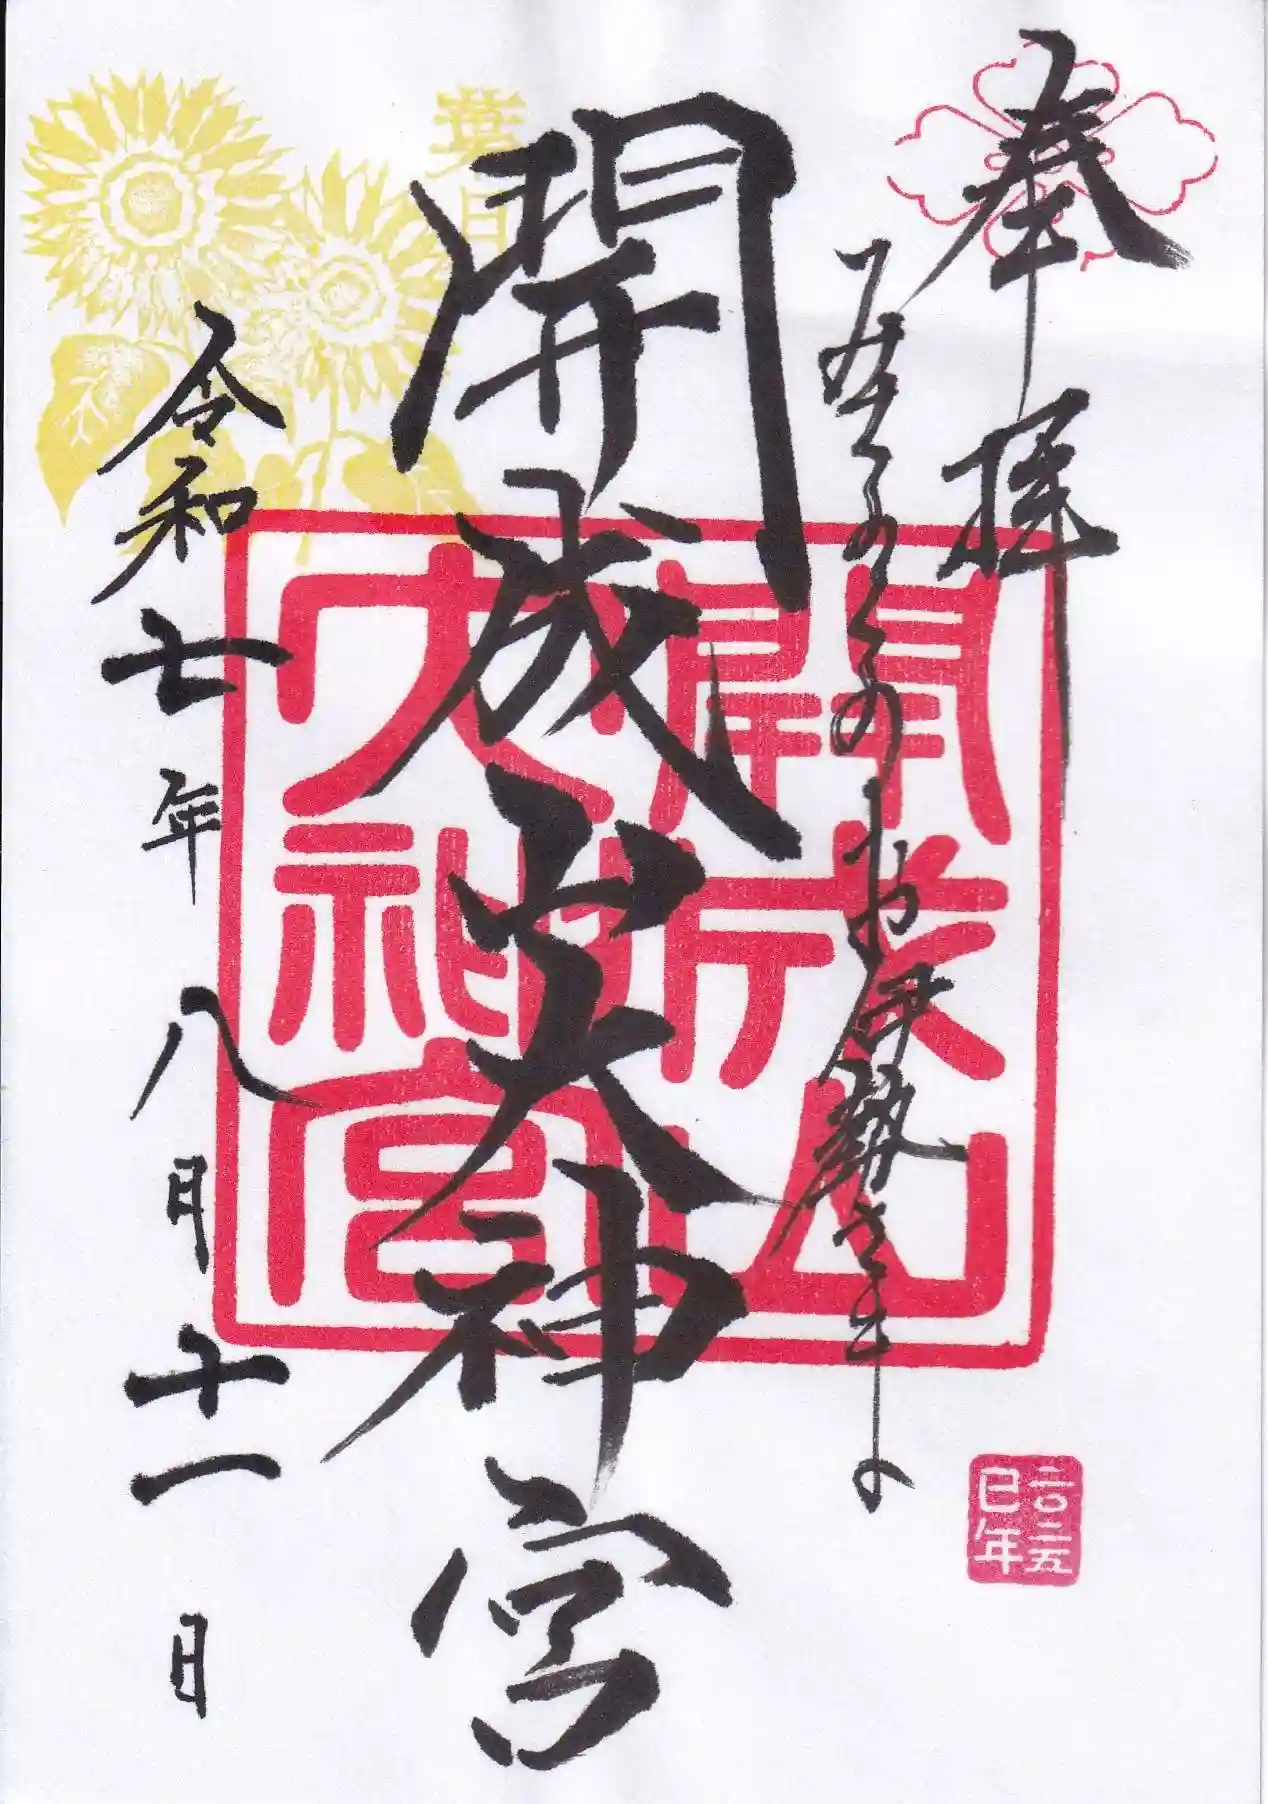 奉拝
みちのくのお伊勢さま
開成山大神宮
開成山
大神宮
葉月
令和七年八月十一日
二〇二五
巳年